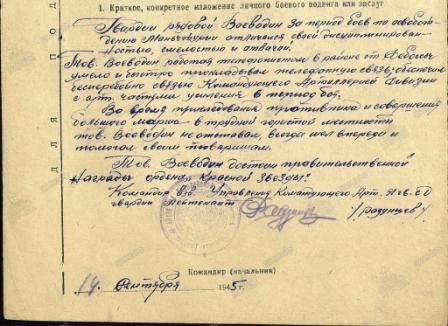 1. Краткое, конкретное изложение личного боевого подвига или заслуг
Гвардии рядовой Воеводин за период боев по освобо-
ждению Манчжурии отличался своей дисциплинирован-
ностью, смелостью и отвагой.
Тов. Воеводин работая телефонистом в районе ст.
умело и быстро прокладывал телефонную связь, обеспечил
бесперебойно связью Командующего Артиллерией Дивизии
с арт. частями усиления в период боя.
Во время преследования противника и совершения
большого марша в трудной гористой местности
тов. Воеводин не отставал, всегда шел впереди и
помогал своим товарищам.
Тов. Воеводин достоин правительственной
награды ордена „Красной Звезды“.
Командир Управления Командующего Арт.
гвардии Лейтенант /Радунцев/
Командир (начальник)
14 Сентября 1945 г.